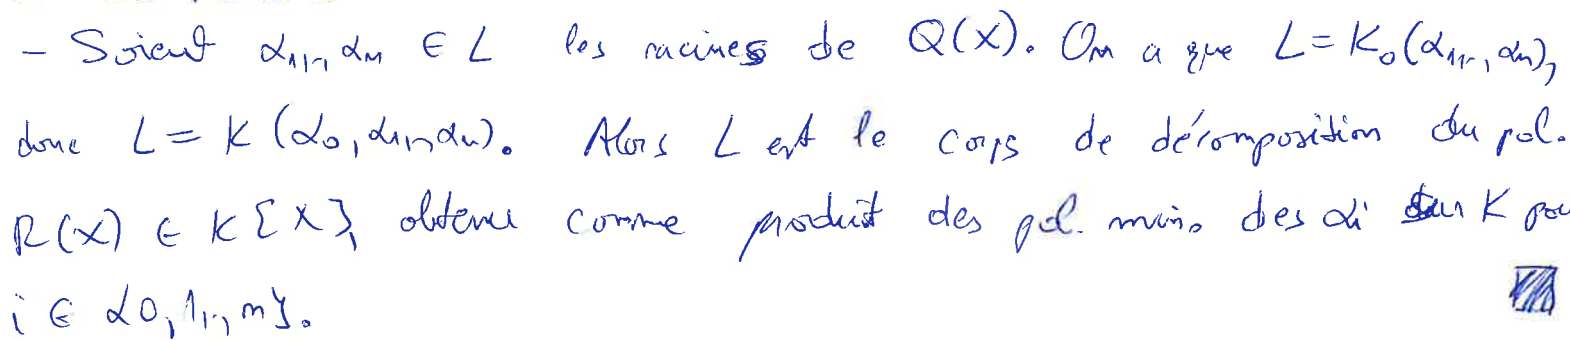 - Soient α₁,.., αₙ ∈ L les racines de Q(X). On a que L = K₀(α₁,.., αₙ),
donc L = K(α₀, α₁,.., αₙ). Alors L est le corps de décomposition du pol.
R(X) ∈ K[X] obtenu comme produit des pol. min. des αi sur K pou
i ∈ {0,1,.., n}.